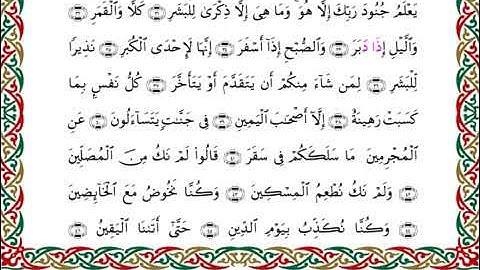 يَعْلَمُ جُنُودَ رَبِّكَ إِلَّا هُوَ ۚ وَمَا هِىَ إِلَّا ذِكْرَىٰ لِلْبَشَرِ كَلَّا وَٱلْقَمَرِ
وَٱلَّيْلِ إِذَا دَبَرَ وَٱلصُّبْحِ إِذَآ أَسْفَرَ إِنَّهَا لَإِحْدَى ٱلْكُبَرِ نَذِيرًا
لِّلْبَشَرِ لِمَن شَآءَ مِنكُمْ أَن يَتَقَدَّمَ أَوْ يَتَأَخَّرَ كُلُّ نَفْسٍۭ بِمَا
كَسَبَتْ رَهِينَةٌ إِلَّآ أَصْحَٰبَ ٱلْيَمِينِ فِى جَنَّٰتٍ يَتَسَآءَلُونَ عَنِ
ٱلْمُجْرِمِينَ مَا سَلَكَكُمْ فِى سَقَرَ قَالُوا۟ لَمْ نَكُ مِنَ ٱلْمُصَلِّينَ
وَلَمْ نَكُ نُطْعِمُ ٱلْمِسْكِينَ وَكُنَّا نَخُوضُ مَعَ ٱلْخَآئِضِينَ
وَكُنَّا نُكَذِّبُ بِيَوْمِ ٱلدِّينِ حَتَّىٰٓ أَتَىٰنَا ٱلْيَقِينُ